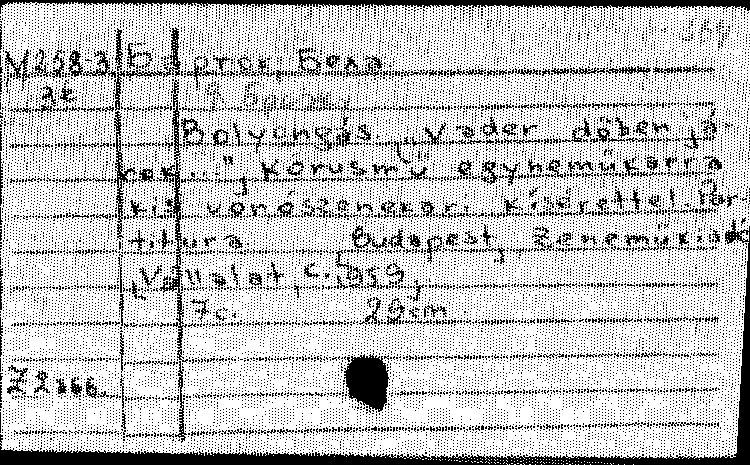 M258-3 Барток, Бела.
3к
Bolyongás. „Vader dőben já-
rok...", Kórusmű egyneműkarra
kis vonószenekari kísérettel. Par-
titura. Budapest, Zeneműkiadó
Vállalat, c. 1959,
7с. 29cm.
Z2366.